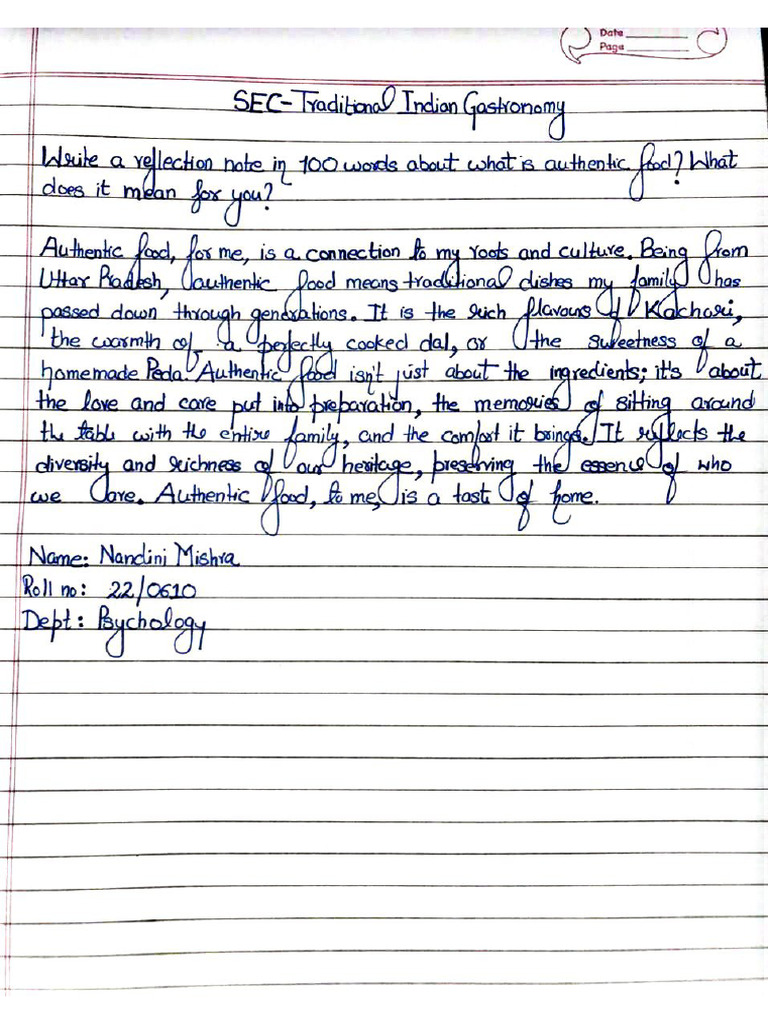 Date
Page
SEC-Traditional Indian Gastronomy
Write a reflection note in 100 words about what is authentic food? What
does it mean for you?
Authentic food, for me, is a connection to my roots and culture. Being from
Uttar Pradesh, authentic food means traditional dishes my family has
passed down through generations. It is the rich flavours of Kachori,
the warmth of a perfectly cooked dal, or the sweetness of a
homemade Peda. Authentic food isn't just about the ingredients; it's about
the love and care put into preparation, the memories of sitting around
the table with the entire family, and the comfort it brings. It reflects the
diversity and richness of our heritage, preserving the essence of who
we are. Authentic food, to me, is a taste of home.
Name: Nandini Mishra
Roll no: 22/0610
Dept: Psychology